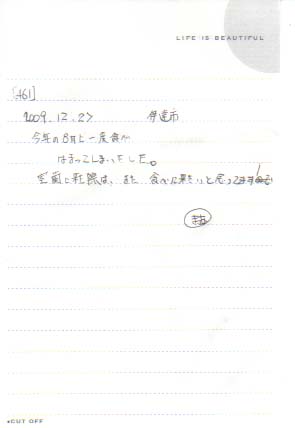 LIFE IS BEAUTIFUL
[461]
2009.12.27 伊達市
今年の8月に一度食べ
はまってしまいました。
室蘭に来た際は、また、食べに来たいと思ってます
CUT OFF